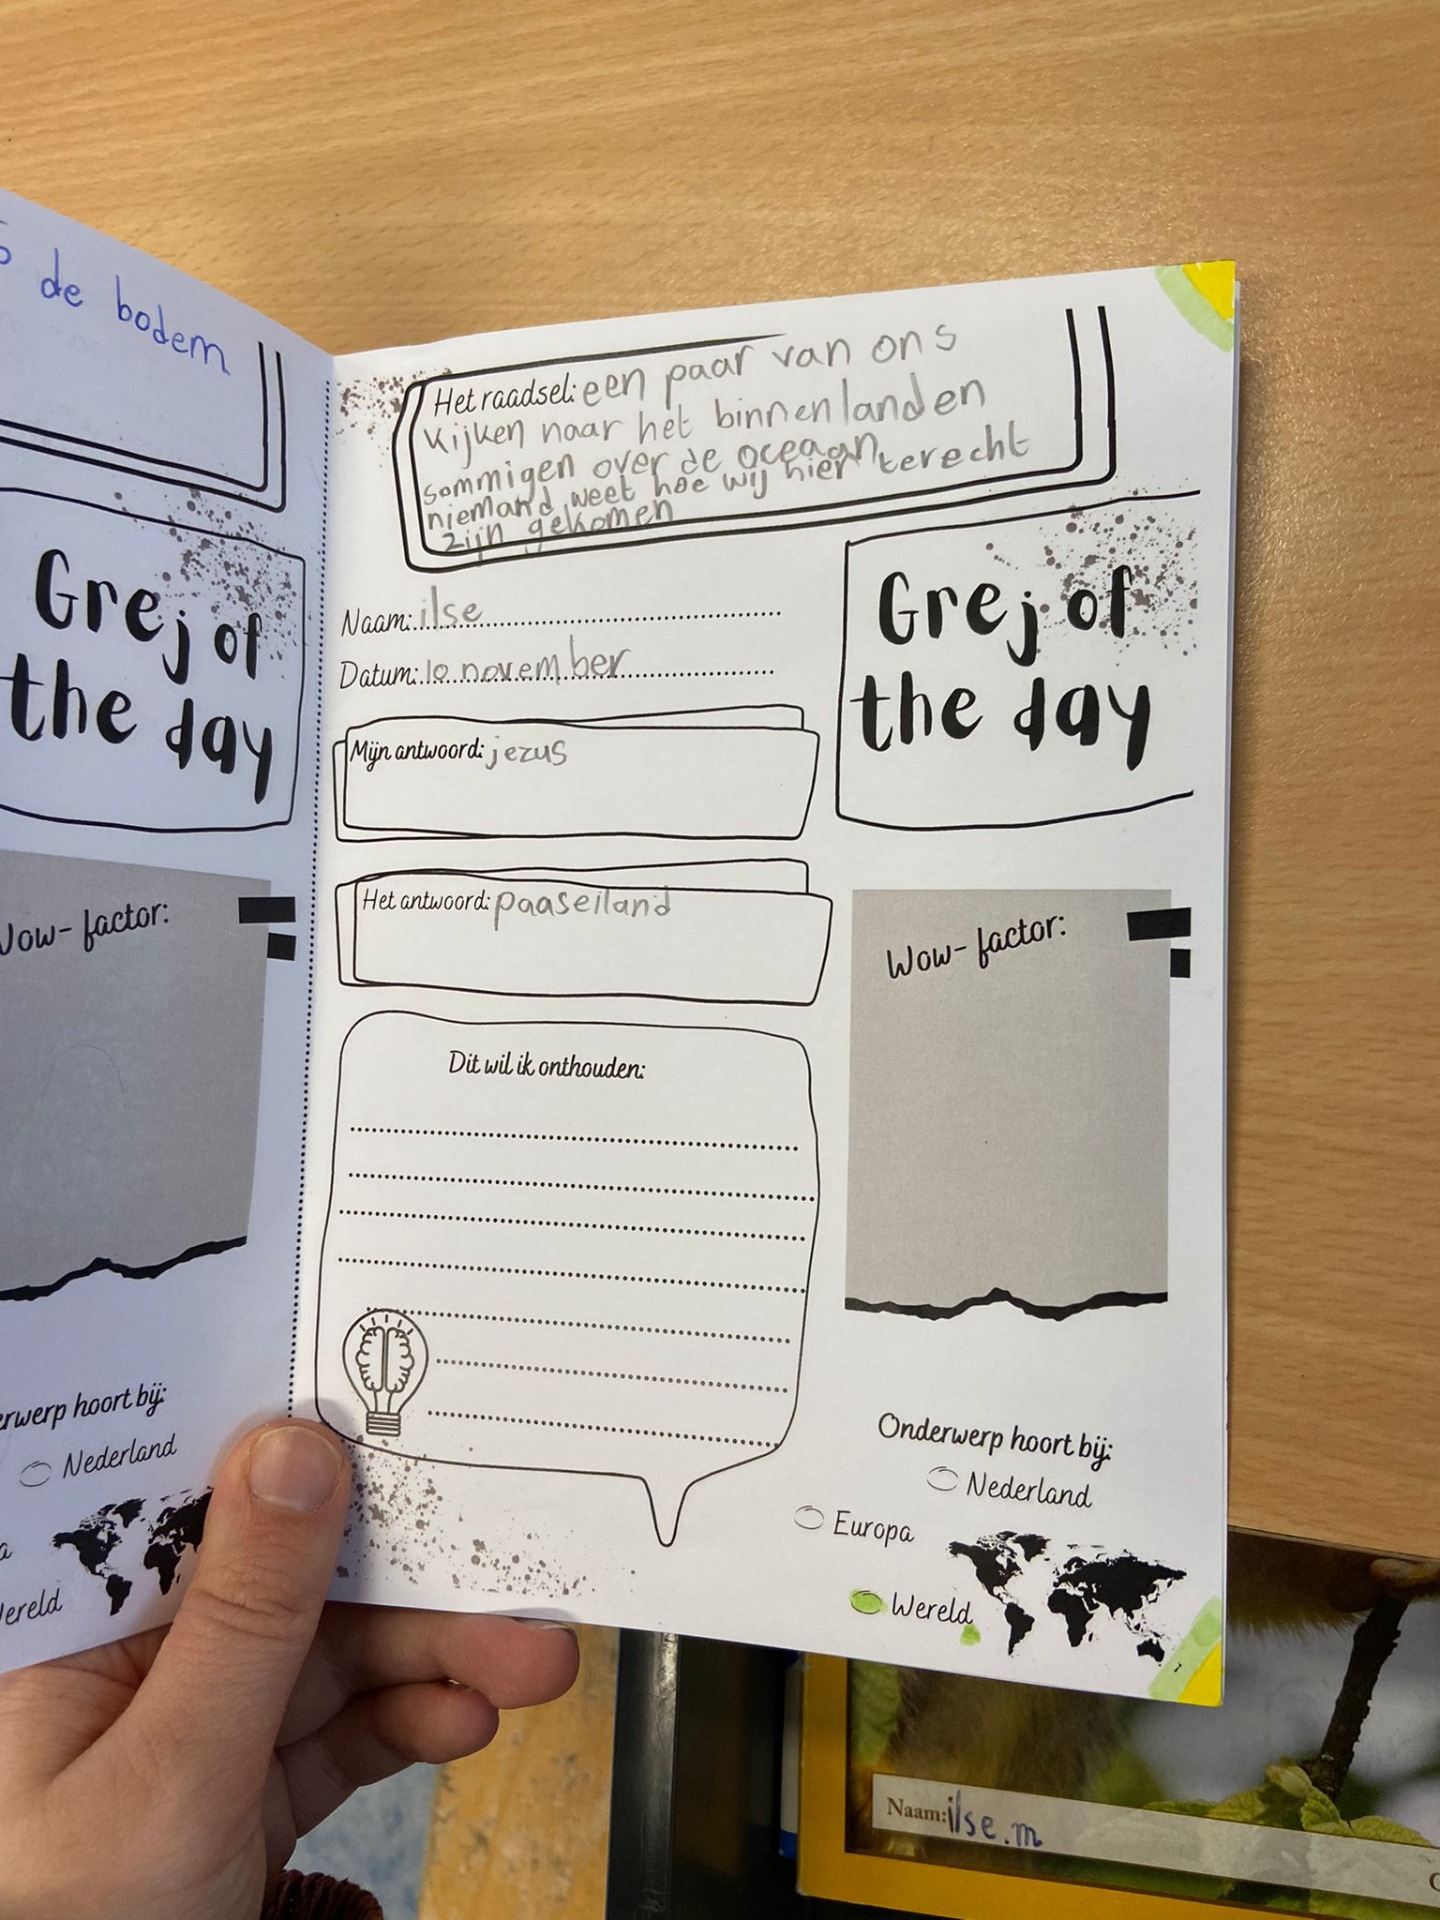 de bodem
Grej of
the day
Wow- factor:
hoort bij:
Nederland
Wereld
Het raadsel: een paar van ons
kijken naar het binnenlanden
sommigen over de oceaan
niemand weet hoe wij hier terecht
zijn gekomen
Naam: ilse
Datum: 10 november
Mijn antwoord: jezus
Het antwoord: paaseiland
Dit wil ik onthouden:
Grej of
the day
Wow- factor:
Onderwerp hoort bij:
Nederland
Europa
Wereld
Naam: ilse.m